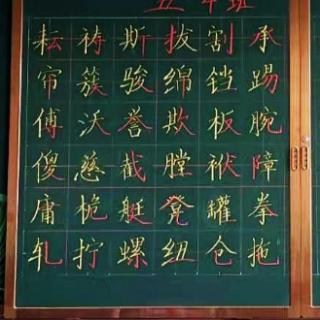 五年班
耘祷斯拔割承
帘簇骏绵铠踢
傅沃誉欺板腕
傻慈截膛袱障
庸桅艇凳罐拳
轧拧螺纽仓拖